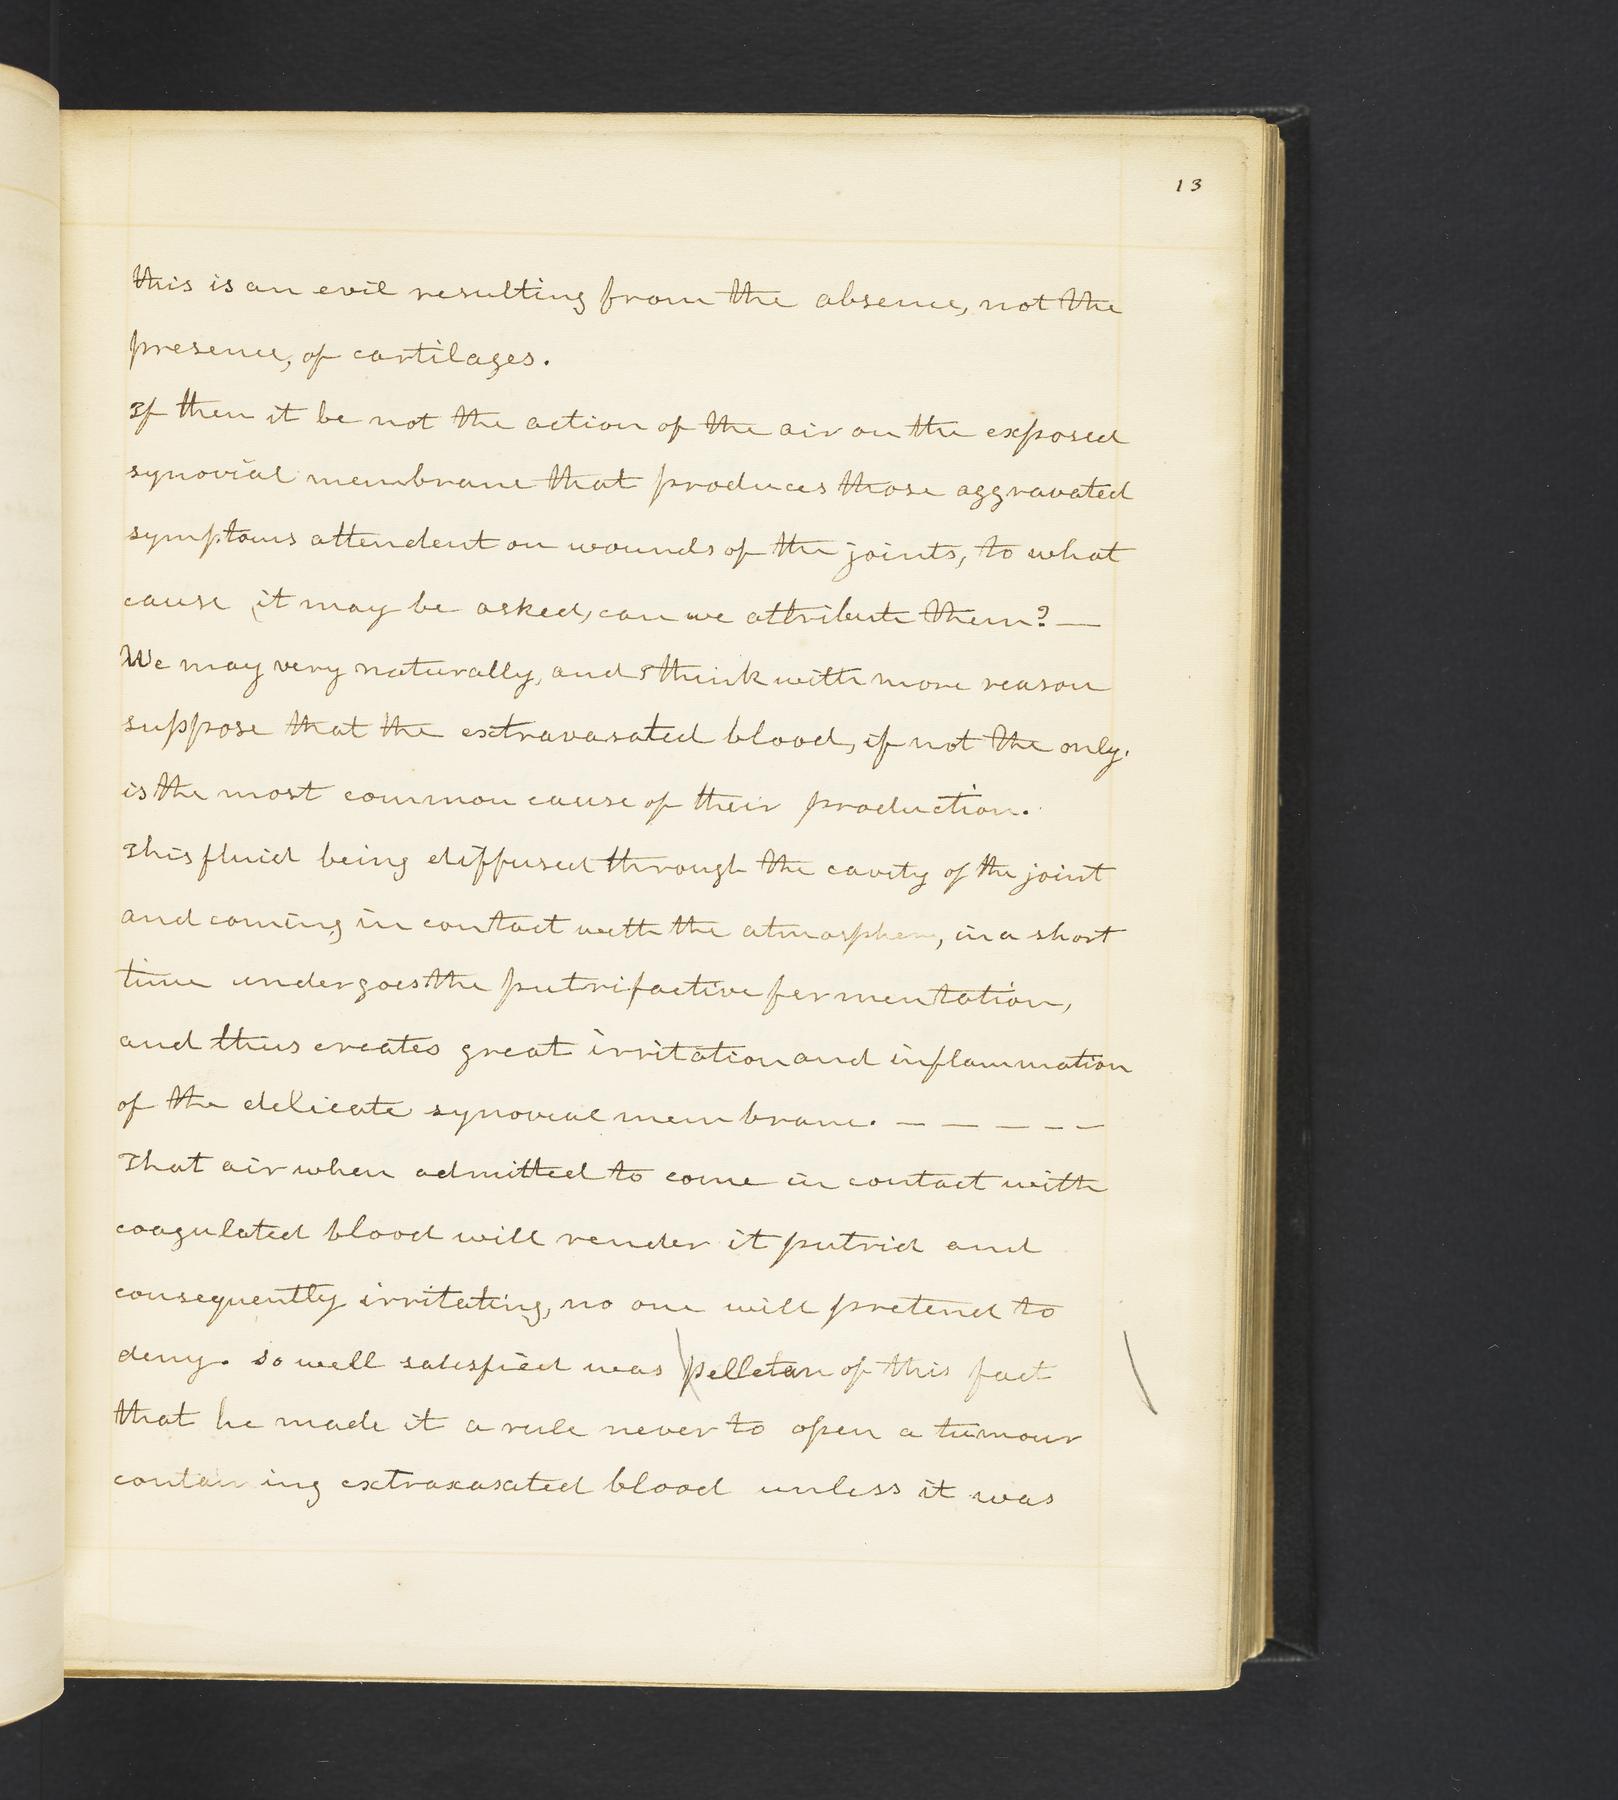 13
this is an evil resulting from the absence, not the
presence, of cartilages.
If then it be not the action of the air on the exposed
synovial membrane that produces those aggravated
symptoms attendent on wounds of the joints, to what
cause (it may be asked, can we attribute them? —
We may very naturally, and I think with more reason
suppose that the extravasated blood, if not the only.
is the most common cause of their production.
This fluid being diffused through the cavity of the joint
and coming in contact with the atmosphere, in a short
time undergoes the putrifactive fermentation,
and thus creates great irritation and inflammation
of the delicate synovial membrane. — — — — —
That air when admitted to come in contact with
coagulated blood will render it putrid and
consequently irritating, no one will pretend to
deny. So well satisfied was pelletan of this fact
that he made it a rule never to open a tumour
containing extraxasated blood unless it was